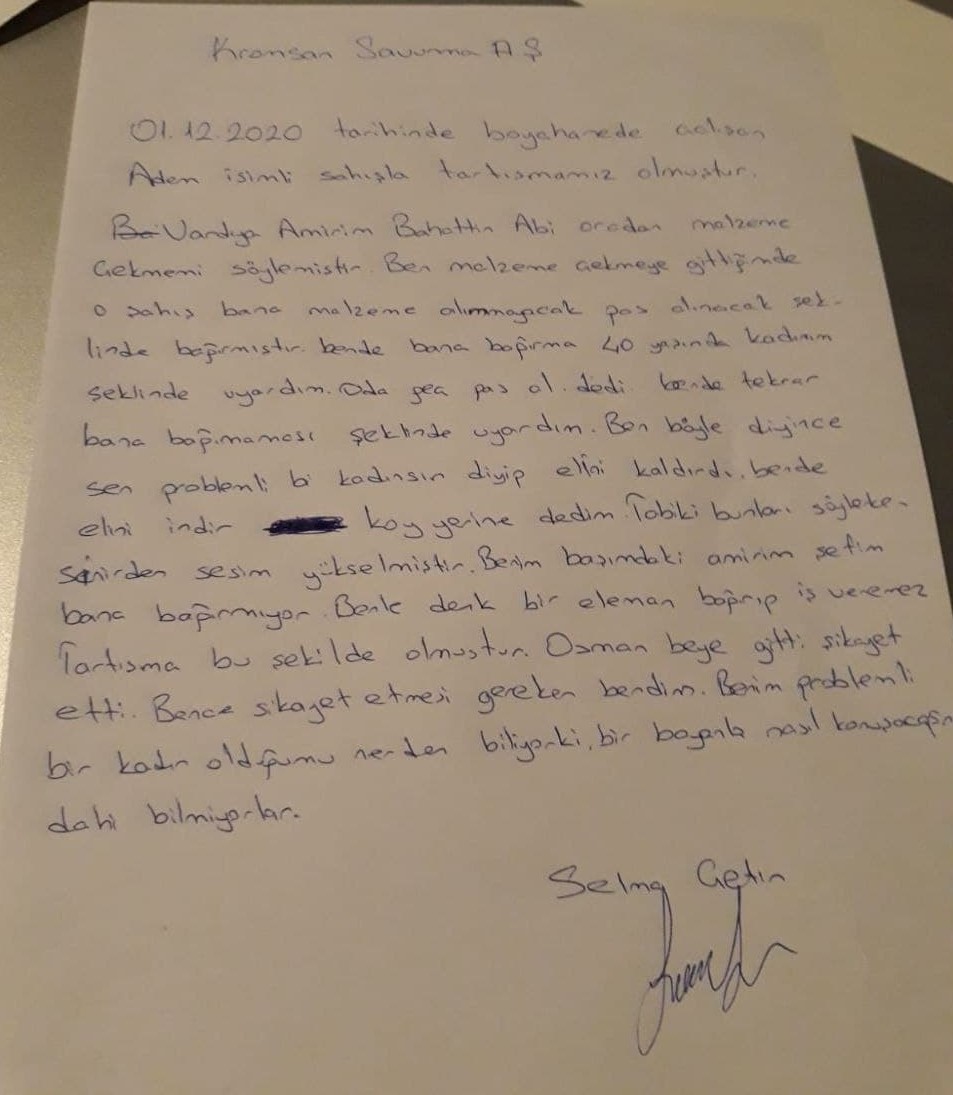 Kromsan Savunma A Ş
01.12.2020 tarihinde boyahanede çalışan
Adem isimli şahışla tartışmamız olmuştur.
Be Vardiya Amirim Bahattin Abi oradan malzeme
Çekmemi söylemiştir. Ben malzeme çekmeye gittiğimde
o şahış bana malzeme alınmayacak pas alınacak şek-
linde bağırmıştır. bende bana bağırma 40 yaşında kadınım
şeklinde uyardım. Oda geç pas al. dedi. bende tekrar
bana bağırmaması şeklinde uyardım. Ben böyle diyince
sen problemli bi kadınsın diyip elini kaldırdı. bende
elini indir koy yerine dedim. Tabiki bunları söylerken
sinirden sesim yükselmiştir. Benim başımdaki amirim şefim
bana bağırmıyor. Benle denk bir eleman bağırıp iş veremez
Tartışma bu şekilde olmuştur. Osman beye gitti şikayet
etti. Bence şikayet etmesi gereken bendim. Benim problemli
bir kadın olduğumu nerden biliyorki, bir bayanla nasıl konuşacağını
dahi bilmiyorlar.
Selma Çetin